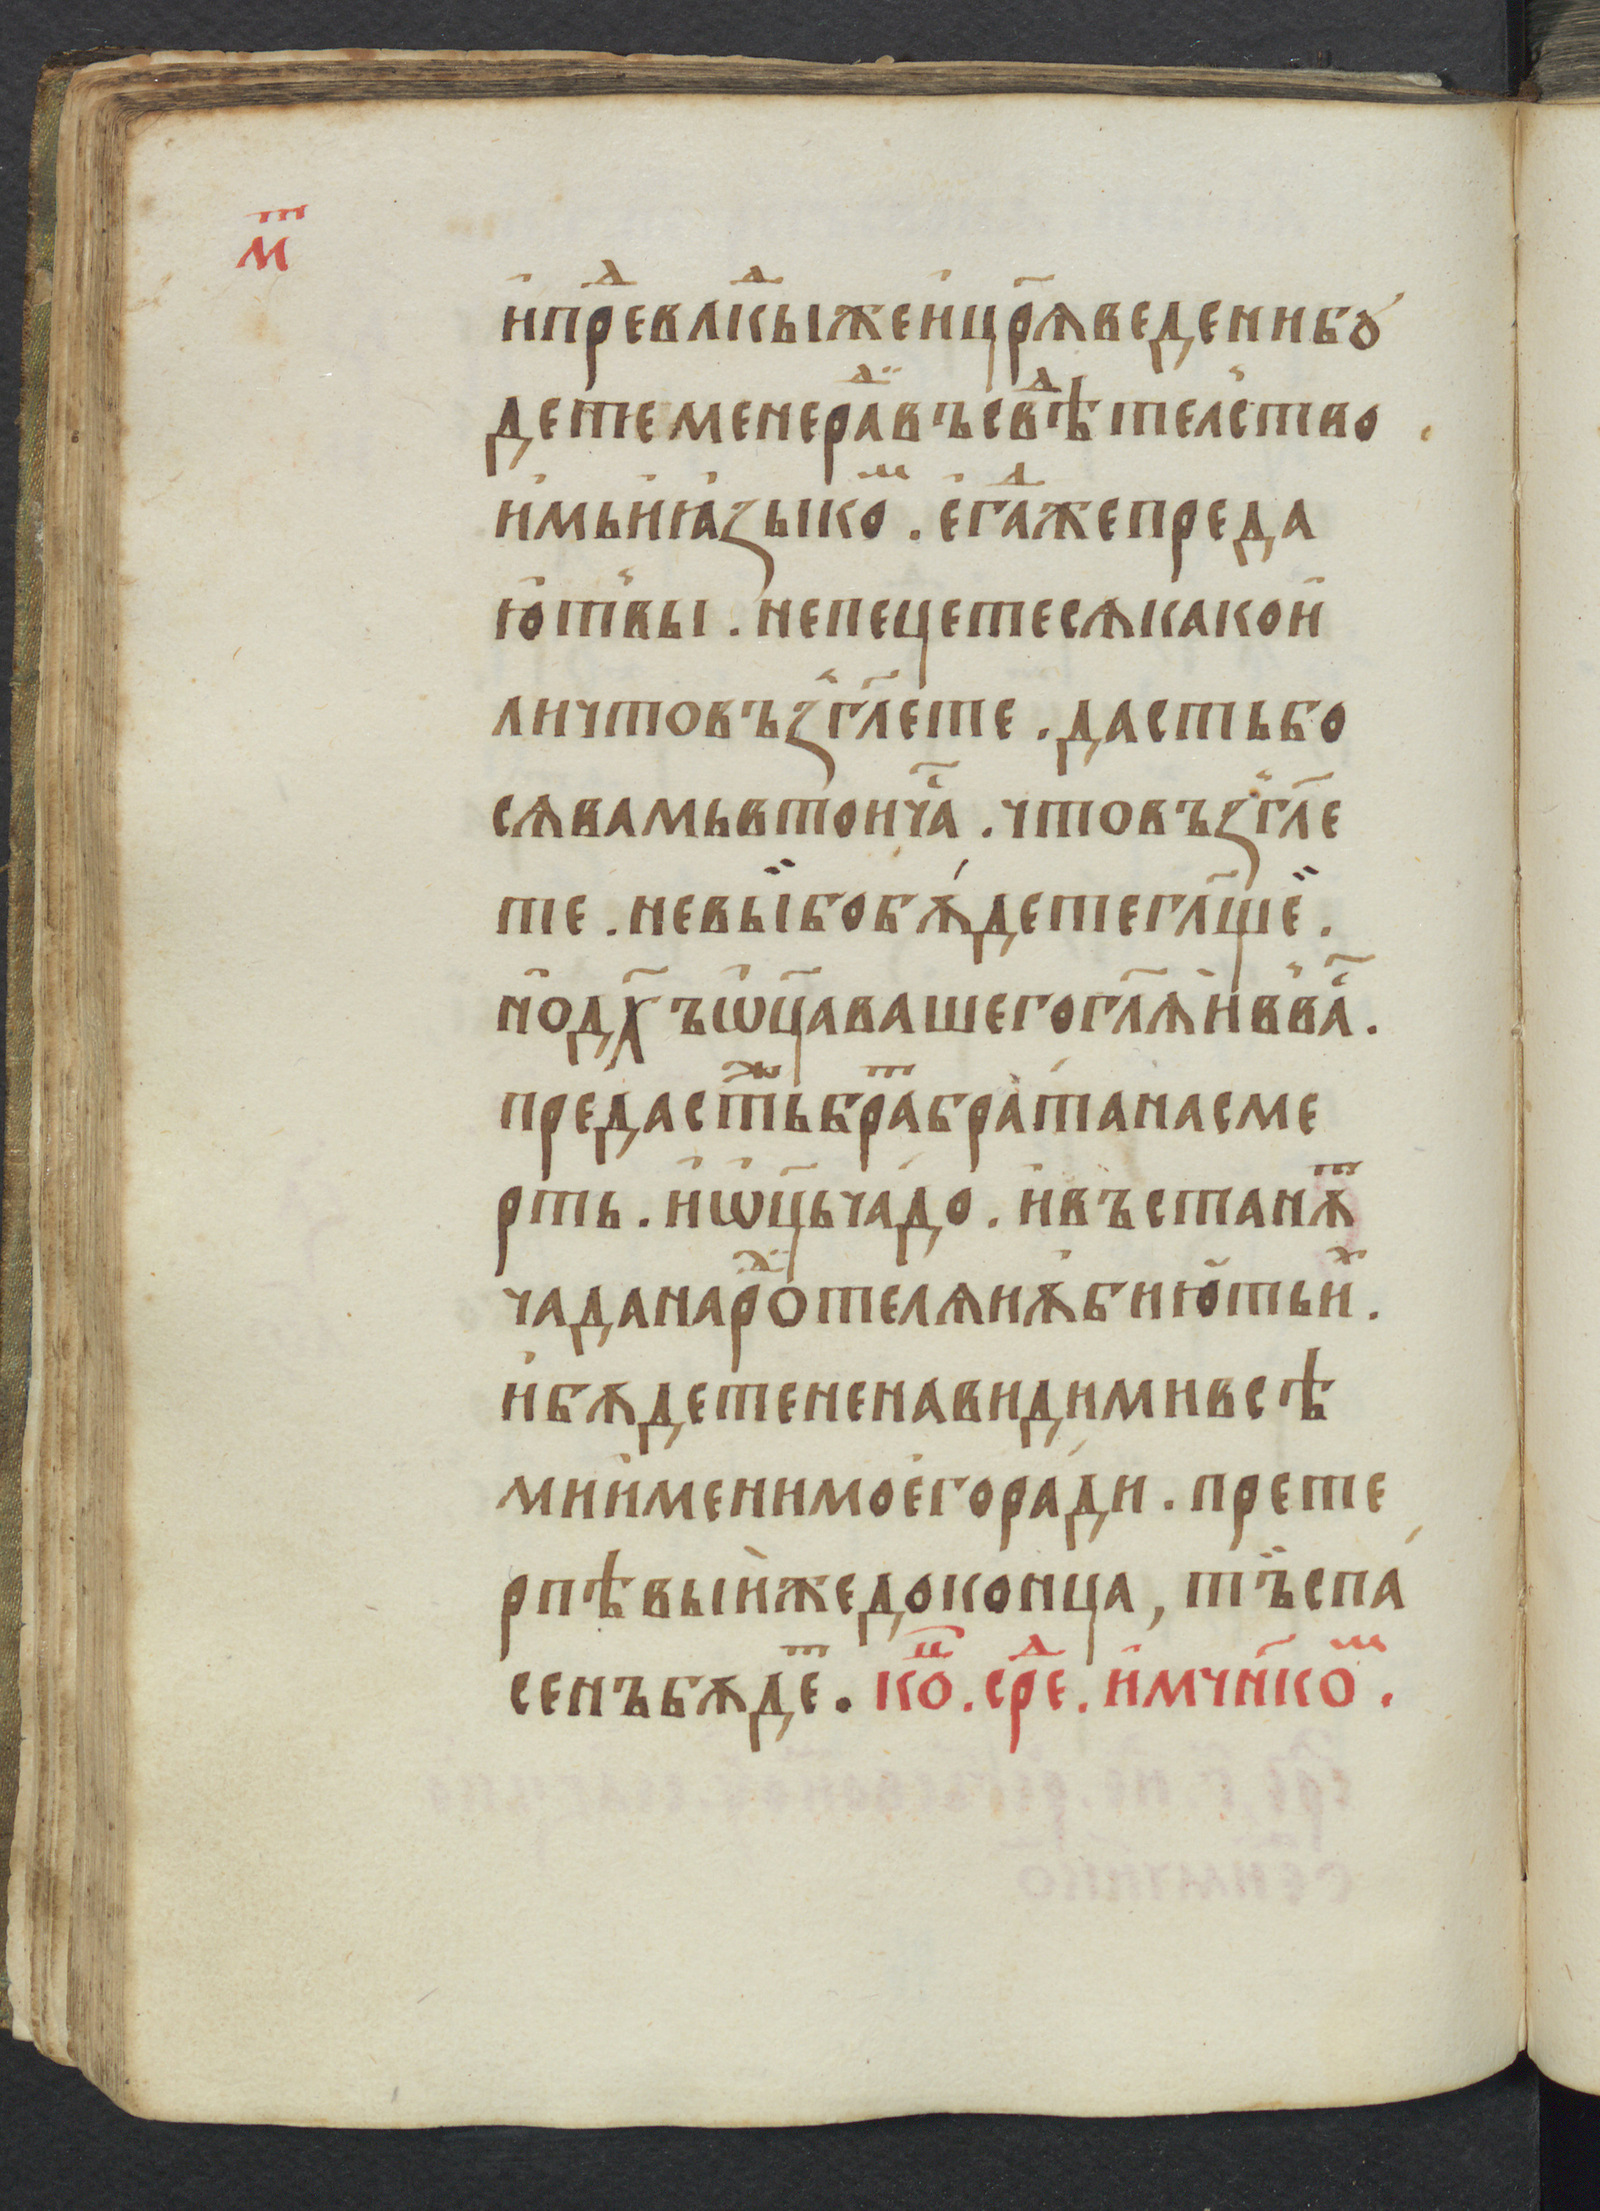 мⷮ
и҆прⷣевлⷣкыжеи҆цр҃ѧведенибꙋ́
детеменераⷣ҆въсвⷣѣтел҆ство
и҆мьи҆ꙗ҆зыкоⷨ. е҆гⷣажепреда
ю҆т҆вы. непецетесѧкакои҆
личтовъꙁ҆гл҃ете. дастьбо
сѧвамьвтоича҃. чтовъꙁ҆гл҃е
те. невӹбобѫ́детегл҃щё.
но҆дх҃ъѡ҆ц҃авашегогл҃ѧи҆в҆ва҃.
предастⷤьбраⷮбра́танасме
рть. и҆ѡ҆ц҃ьча́до. и҆въстанѫⷮ
чаданароⷣ҆телѧиѫ҆бию҆тьиⷯ.
и҆бѫдетененавидимивсѣ
мии҆менимое҆гора́ди. прете
рпѣвыи҆жедоконца, тъ̈спа́
сенъбѫдеⷮ. коⷰ. срⷣе. и҆мчн҃коⷨ.